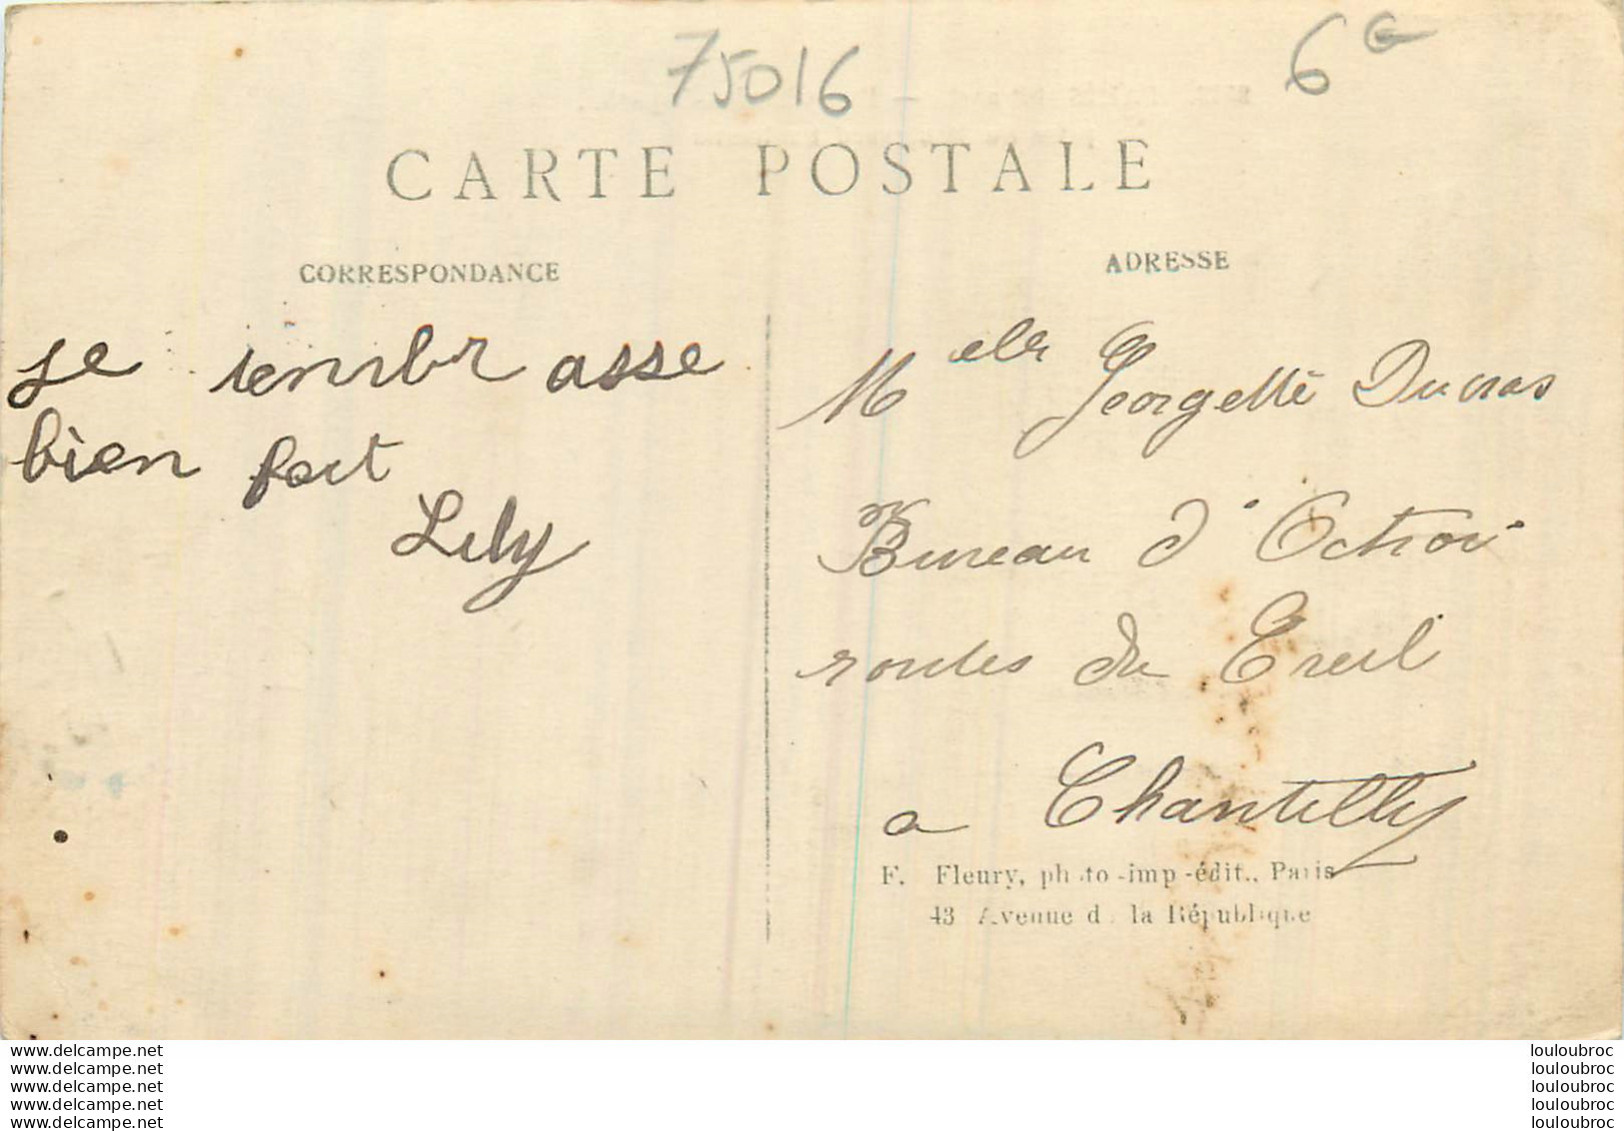 75016
6€
CARTE POSTALE
CORRESPONDANCE
je tembr asse
bien fort
Lily
ADRESSE
Melle Georgette Ducros
Bureau d'Octroi
routes du Creil
a Chantilly
F. Fleury, photo-imp-édit., Paris
43 Avenue de la République
www.delcampe.net
www.delcampe.net
www.delcampe.net
www.delcampe.net
www.delcampe.net
louloubroc
louloubroc
louloubroc
louloubroc
louloubroc